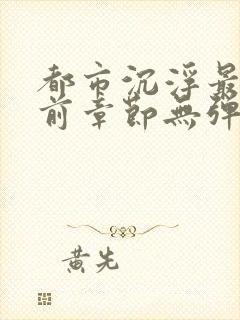 都市沉浮最
前章節無彈
黃先